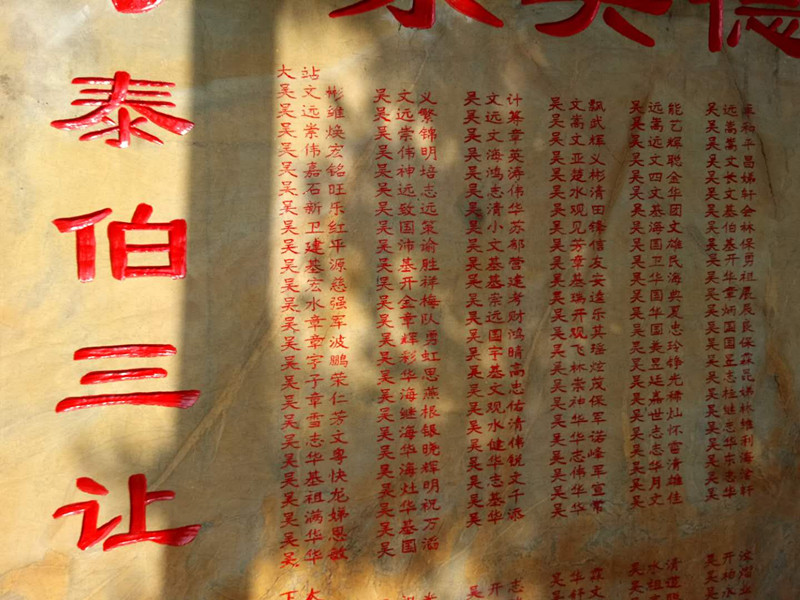 泰伯三让
大站
吴文彬
吴远维
吴崇焕
吴伟宏
吴嘉铭
吴石旺
吴新乐
吴卫红
吴建平
吴基源
吴宏慈
吴水强
吴章军
吴章波
吴字鹏
吴子荣
吴章仁
吴雪芳
吴志文
吴华粤
吴基快
吴祖龙
吴满娣
吴华思
吴华敏
吴文义
吴远繁
吴崇锦
吴伟明
吴神培
吴远志
吴致远
吴国策
吴沛谕
吴基胜
吴开祥
吴金梅
吴章队
吴辉勇
吴彩虹
吴华思
吴海燕
吴继根
吴海银
吴华晓
吴海辉
吴灶明
吴华祝
吴基万
吴国滔
吴文计
吴远算
吴文章
吴海英
吴鸿涛
吴志伟
吴清华
吴小苏
吴文部
吴基营
吴基建
吴崇考
吴远财
吴国鸿
吴宇晴
吴基高
吴文忠
吴观佑
吴水清
吴健伟
吴华锐
吴志文
吴基千
吴华添
吴文飘
吴嵩武
吴文辉
吴亚义
吴楚彬
吴水清
吴观田
吴见锋
吴芳信
吴章友
吴基安
吴瑞逵
吴开乐
吴观其
吴飞瑶
吴林煊
吴崇茂
吴神保
吴华军
吴华诺
吴志峰
吴伟军
吴华宣
吴华常
吴远能
吴嵩艺
吴远辉
吴文聪
吴四金
吴文华
吴基团
吴海文
吴国雄
吴卫民
吴华海
吴国奥
吴华夏
吴国忠
吴昱铮
吴延光
吴嘉稀
吴世灿
吴志怀
吴志富
吴华清
吴月雄
吴文佳
吴远来
吴嵩和
吴嵩平
吴文昌
吴长娣
吴文轩
吴基会
吴伯林
吴基保
吴开勇
吴华祖
吴章展
吴炳辰
吴国良
吴国保
吴昱森
吴志昆
吴桂娣
吴继林
吴志维
吴华利
吴东海
吴华轩